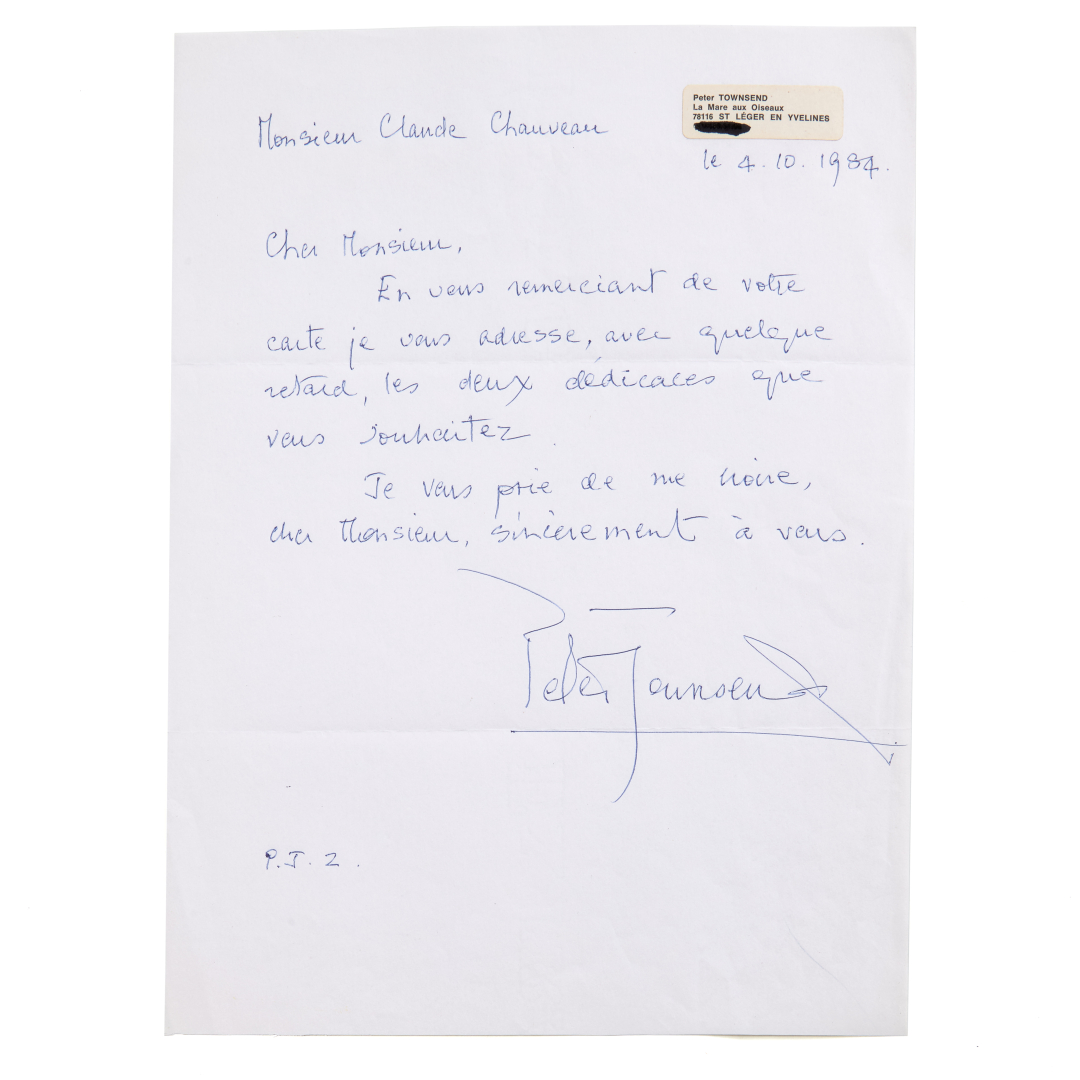 Peter TOWNSEND
La Mare aux Oiseaux
78116 ST LÉGER EN YVELINES
Monsieur Claude Chauveau
le 4.10.1984.
Cher Monsieur,
En vous remerciant de votre
carte je vous adresse, avec quelque
retard, les deux dédicaces que
vous souhaitez.
Je vous prie de me croire,
cher Monsieur, sincèrement à vous.
Peter Townsend
P.J. 2.